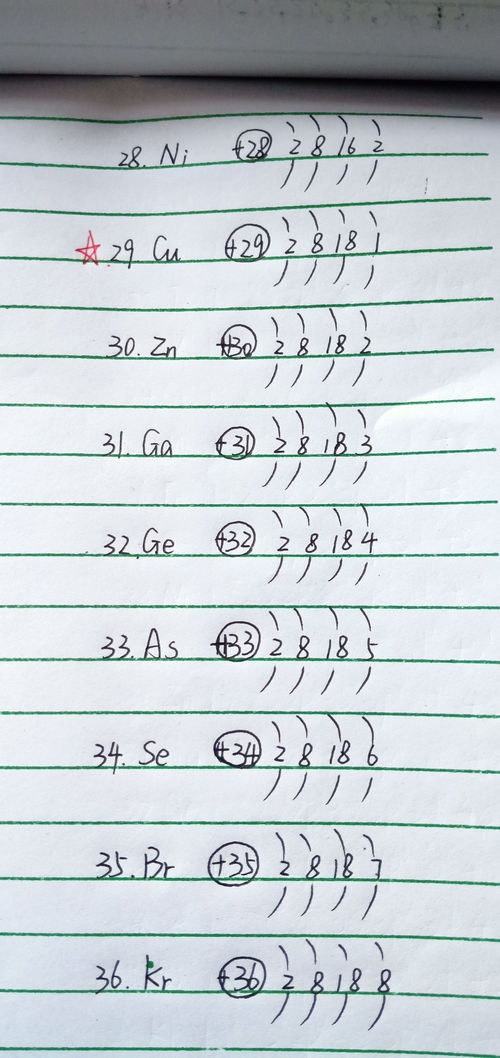 28. Ni +28 2 8 16 2
☆ 29 Cu +29 2 8 18 1
30. Zn +30 2 8 18 2
31. Ga +31 2 8 18 3
32. Ge +32 2 8 18 4
33. As +33 2 8 18 5
34. Se +34 2 8 18 6
35. Br +35 2 8 18 7
36. Kr +36 2 8 18 8